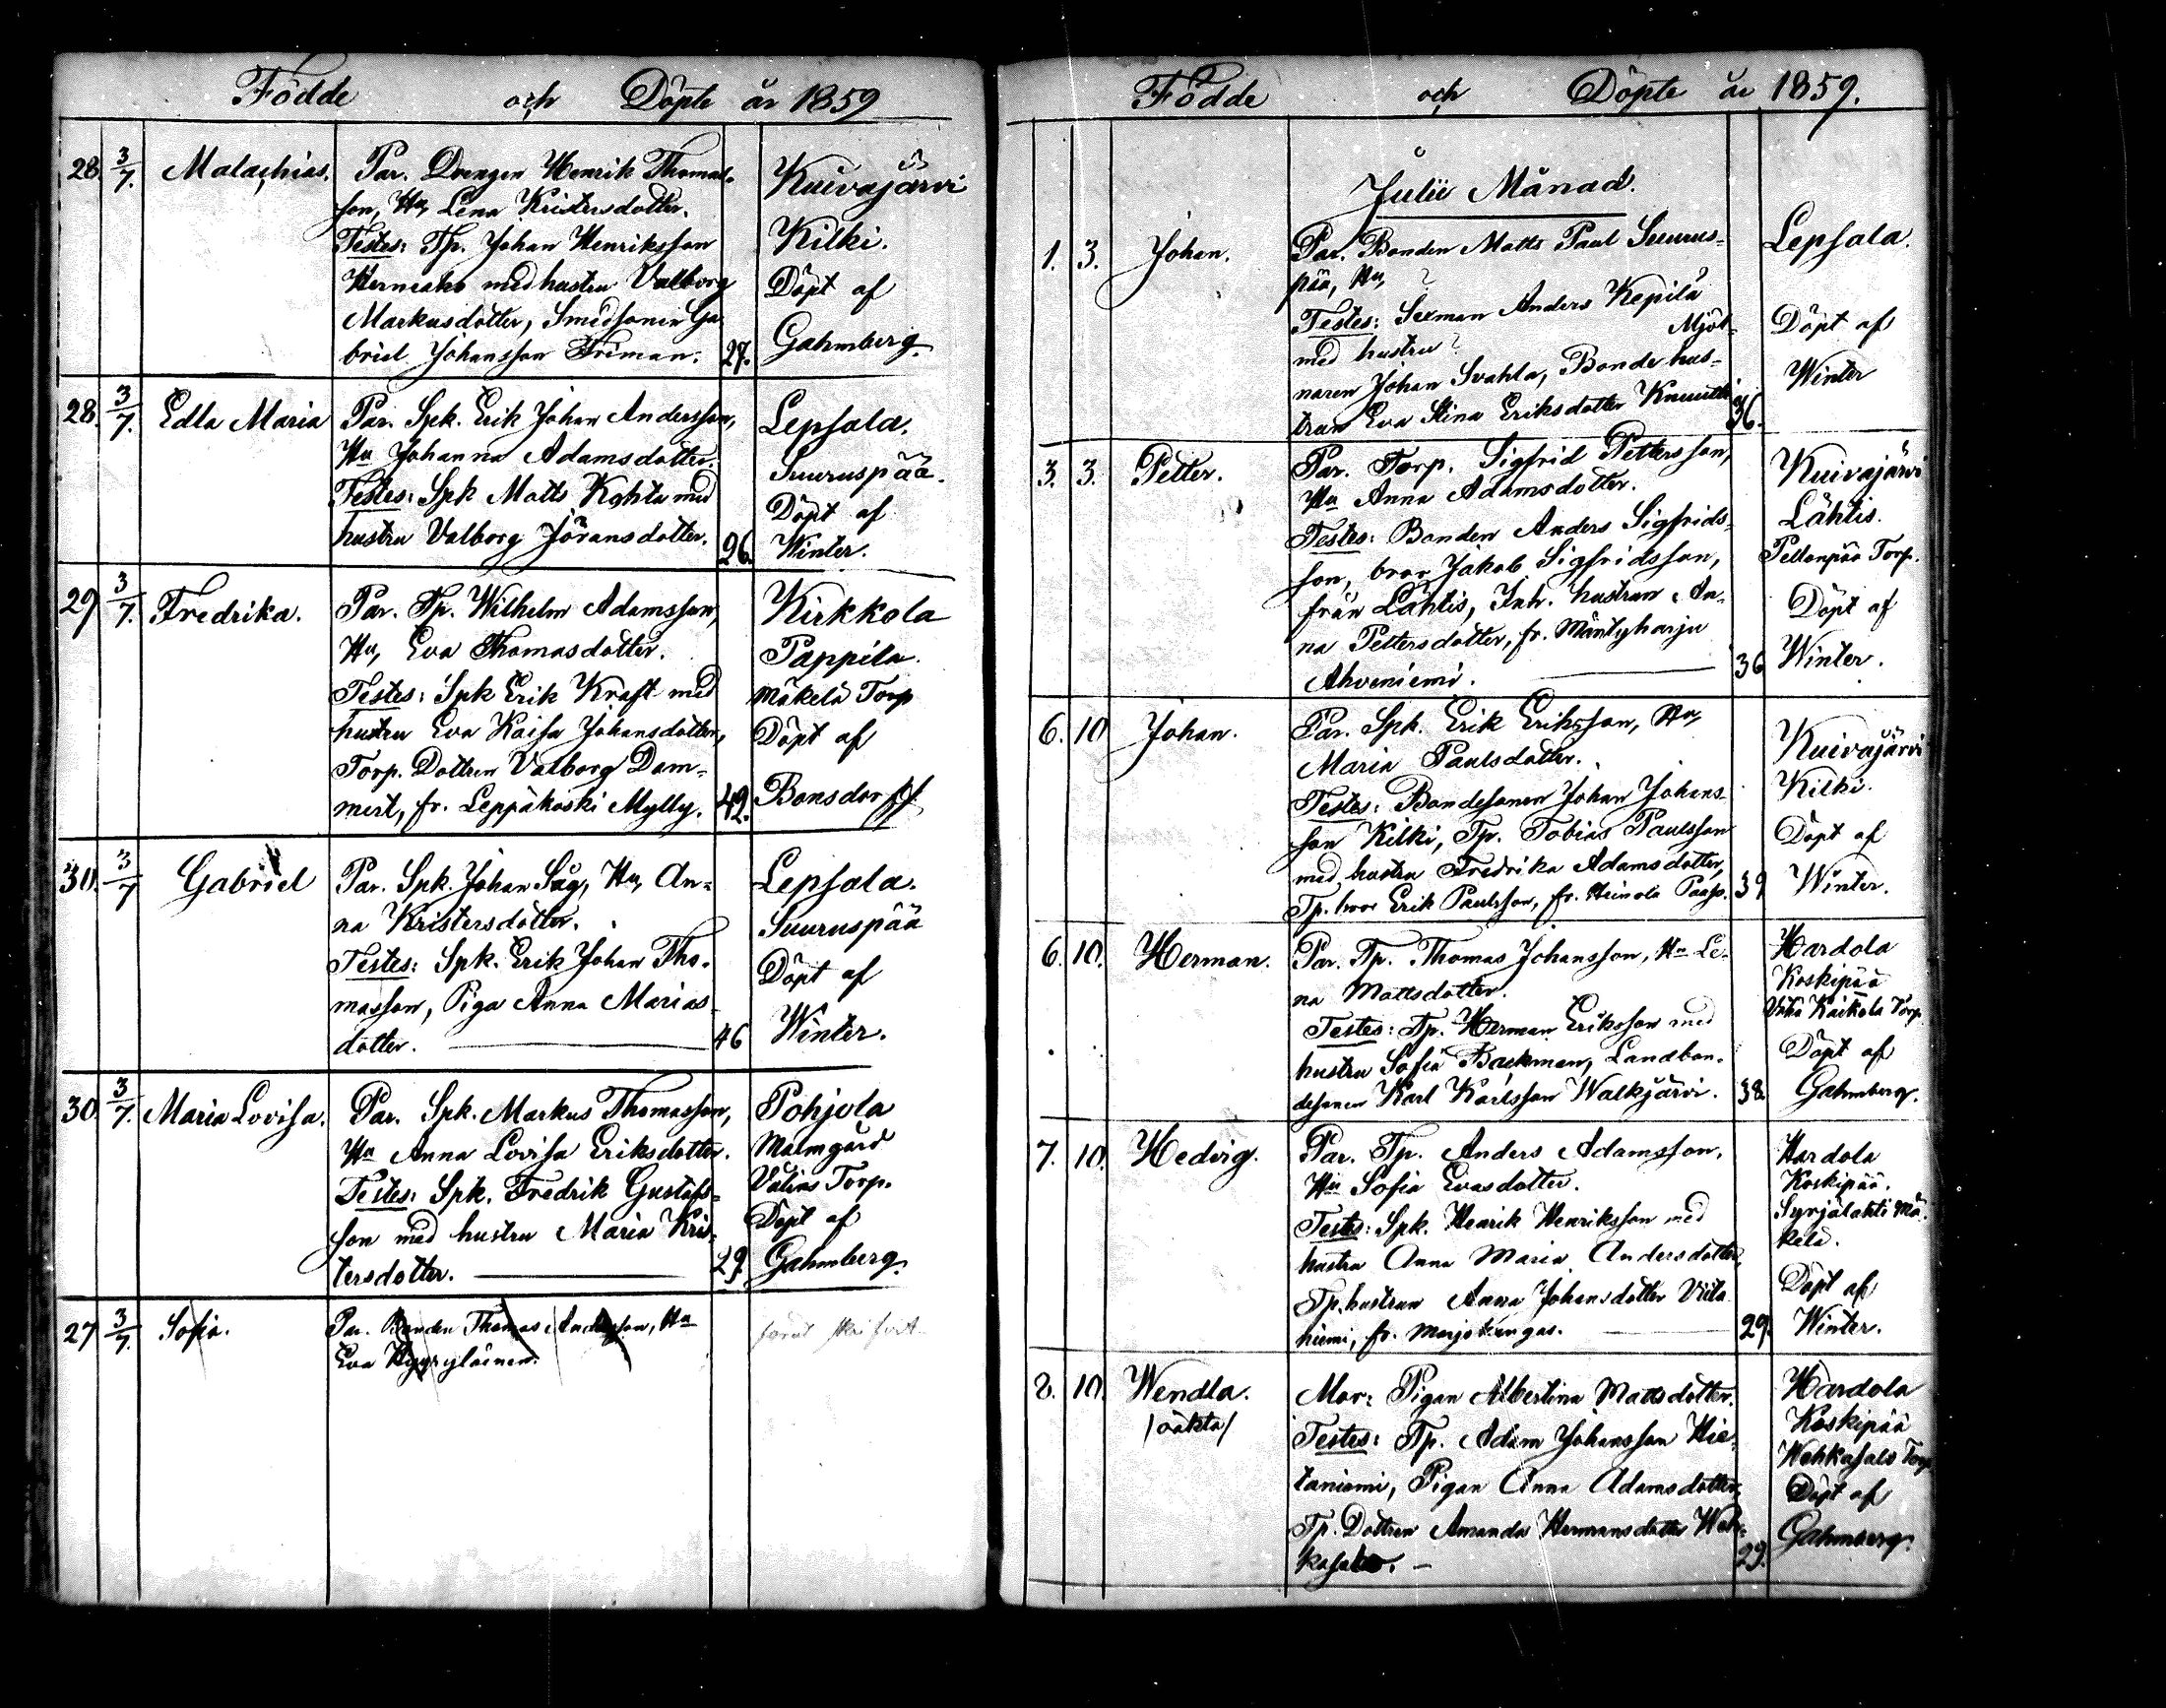 Födde och Döpte år 1859
28. 3/7. Malachias. Par. Drengen Henrik Thomas-
son, Hu, Lena Kristersdotter.
Testes: Tp. Johan Henriksson
med hustru Valborg
Markusdotter, Smedsonen Ga-
briel Johansson Friman. 27.
Kuivajärvi
Kilki.
Döpt af
Gahmberg.
28. 3/7. Edla Maria Par. Spk. Erik Johan Andersson,
Hu Johanna Adamsdotter.
Testes: Spk Matts Kohta med
hustru Valborg Jöransdotter. 26.
Lepsala.
Suuruspää.
Döpt af
Winter.
29 3/7. Fredrika. Par. Tp. Wilhelm Adamsson,
Hu, Eva Thomasdotter.
Testes: Spk Erik Kraft med
hustru Eva Kaisa Johansdotter,
Torp. Dottren Valborg Dam-
mert, fr. Leppäkoski Mylly. 42.
Kirkkola
Pappila.
Mäkelä Torp
Döpt af
Bonsdorff
30. 3/7 Gabriel Par. Spk. Johan Såg, Hu, An-
na Kristersdotter.
Testes: Spk. Erik Johan Tho-
masson, Piga Anna Marias-
dotter. 46
Lepsala.
Suuruspää
Döpt af
Winter.
30 3/7. Maria Lovisa. Par. Spk. Markus Thomasson,
Hu Anna Lovisa Eriksdotter.
Testes: Spk. Fredrik Gustafs-
son med hustru Maria Kris-
tersdotter. 29.
Pohjola
Malmgård
Torp.
Döpt af
Gahmberg.
27 3/7. Sofia. Par. Bonden Thomas Andersson, Hu
Eva
Födde och Döpte år 1859.
Julii Månad.
1. 3. Johan. Par. Bonden Matts Paul Suurus-
pää, Hu, ?
Testes: Sexman Anders Kepilä
med hustru? Mjöl-
naren Johan Svahla, Bonde hus-
trun Eva Stina Eriksdotter Knuutti 36.
Lepsala.
Döpt af
Winter
3. 3. Petter. Par. Torp. Sigfrid Pettersson,
Hu Anna Adamsdotter.
Testes: Bonden Anders Sigfrids-
son, bror Jakob Sigfridsson,
från Lähtis, Inh. hustrun An-
na Pettersdotter, fr. Mäntyharju
Ahveniemi. 36
Kuivajärvi
Lähtis.
Pellonpää Torp.
Döpt af
Winter.
6. 10 Johan. Par. Spk. Erik Eriksson, Hu,
Maria Paulsdotter.
Testes: Bondesonen Johan Johans-
son Kilki, Tp. Tobias Paulsson
med hustru Fredrika Adamsdotter,
Tp. bror Erik Paulsson, fr. Heinola 39
Kuivajärvi
Kilki.
Döpt af
Winter.
6. 10. Herman. Par. Tp. Thomas Johansson, Hu Le-
na Mattsdotter.
Testes: Tp. Herman Eriksson med
hustru Sofia Backman, Landbon-
desonen Karl Karlsson Walkjärvi. 38.
Hardola
Koskipää
Torp
Döpt af
Gahmberg.
7. 10. Hedvig. Par. Tp. Anders Adamsson,
Hu Sofia Evasdotter.
Testes: Spk. Henrik Henriksson med
hustru Anna Maria Andersdotter,
Tp. hustrun Anna Johansdotter Viita-
niemi, fr. Marjokangas. 29.
Hardola
Koskipää.
Syrjälahti Mä-
kelä.
Döpt af
Winter.
8. 10. Wendla. Mor: Pigan Albertina Mattsdotter.
/oäkta/ Testes: Tp. Adam Johansson Hie-
taniemi, Pigan Anna Adamsdotter,
Tp. Dottren Amanda Hermansdotter Weh-
kasalo. 29.
Hardola
Koskipää
Wehkasalo Torp
Döpt af
Gahmberg.